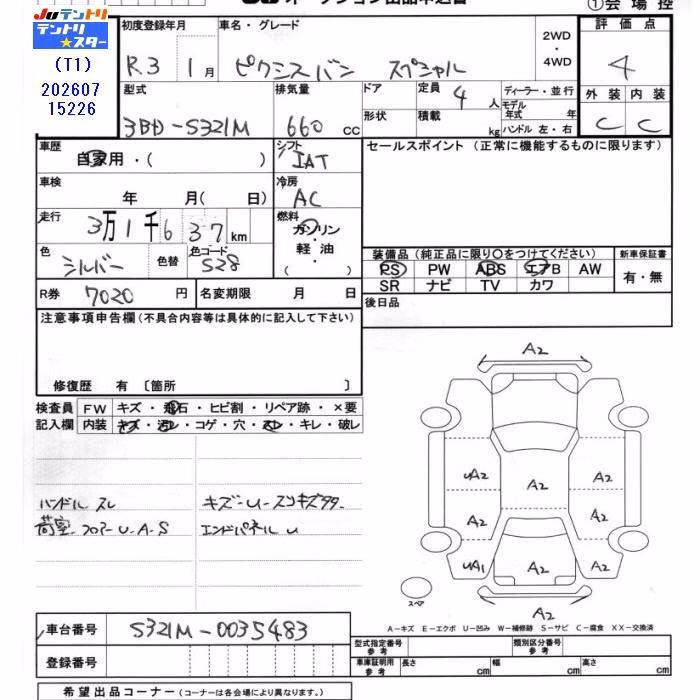 JUテントリ
テントリ★スター
(T1)
202607
15226
オークション出品申込書
①会場控
初度登録年月
R.3 1月
車名・グレード
ピクシスバン スペシャル
2WD
・
4WD
評価点
4
外装 内装
C C
型式
3BD-S321M
排気量
660 cc
ドア
形状
定員 4 人
積載 kg
ディーラー・並行
モデル年式 年
ハンドル 左・右
車歴
自家用・( )
シフト
IAT
セールスポイント(正常に機能するものに限ります)
車検
年 月( 日)
冷房
AC
走行
3万1千637km
燃料
ガソリン
・
軽油
( ・ )
色
シルバー
色替
色コード
S28
装備品(純正品に限り○をつけてください)
PS PW ABS エアB AW
SR ナビ TV カワ
新車保証書
有・無
R券 7020円
名変期限 月 日
後日品
注意事項申告欄(不具合内容等は具体的に記入して下さい)
修復歴 有〔箇所 〕
検査員
記入欄
FW キズ・飛石・ヒビ割・リペア跡・×要
内装 キズ・汚レ・コゲ・穴・スレ・キレ・破レ
ハンドル スレ
荷室 フロアーU-A-S
キズ-U-スリキズタタ-
エンドパネル U
A2
A2
UA2
A2
A2
A2
A2
A2
UA1
A2
A2
A2
スペア
A-キズ E-エクボ U-凹み W-補修跡 S-サビ C-腐食 XX-交換済
車台番号
S321M-0035483
登録番号
型式指定番号
参考
類別区分番号
参考
車庫証明用
参考
長さ cm
幅 cm
高さ cm
希望出品コーナー(コーナーは各会場により異なります。)